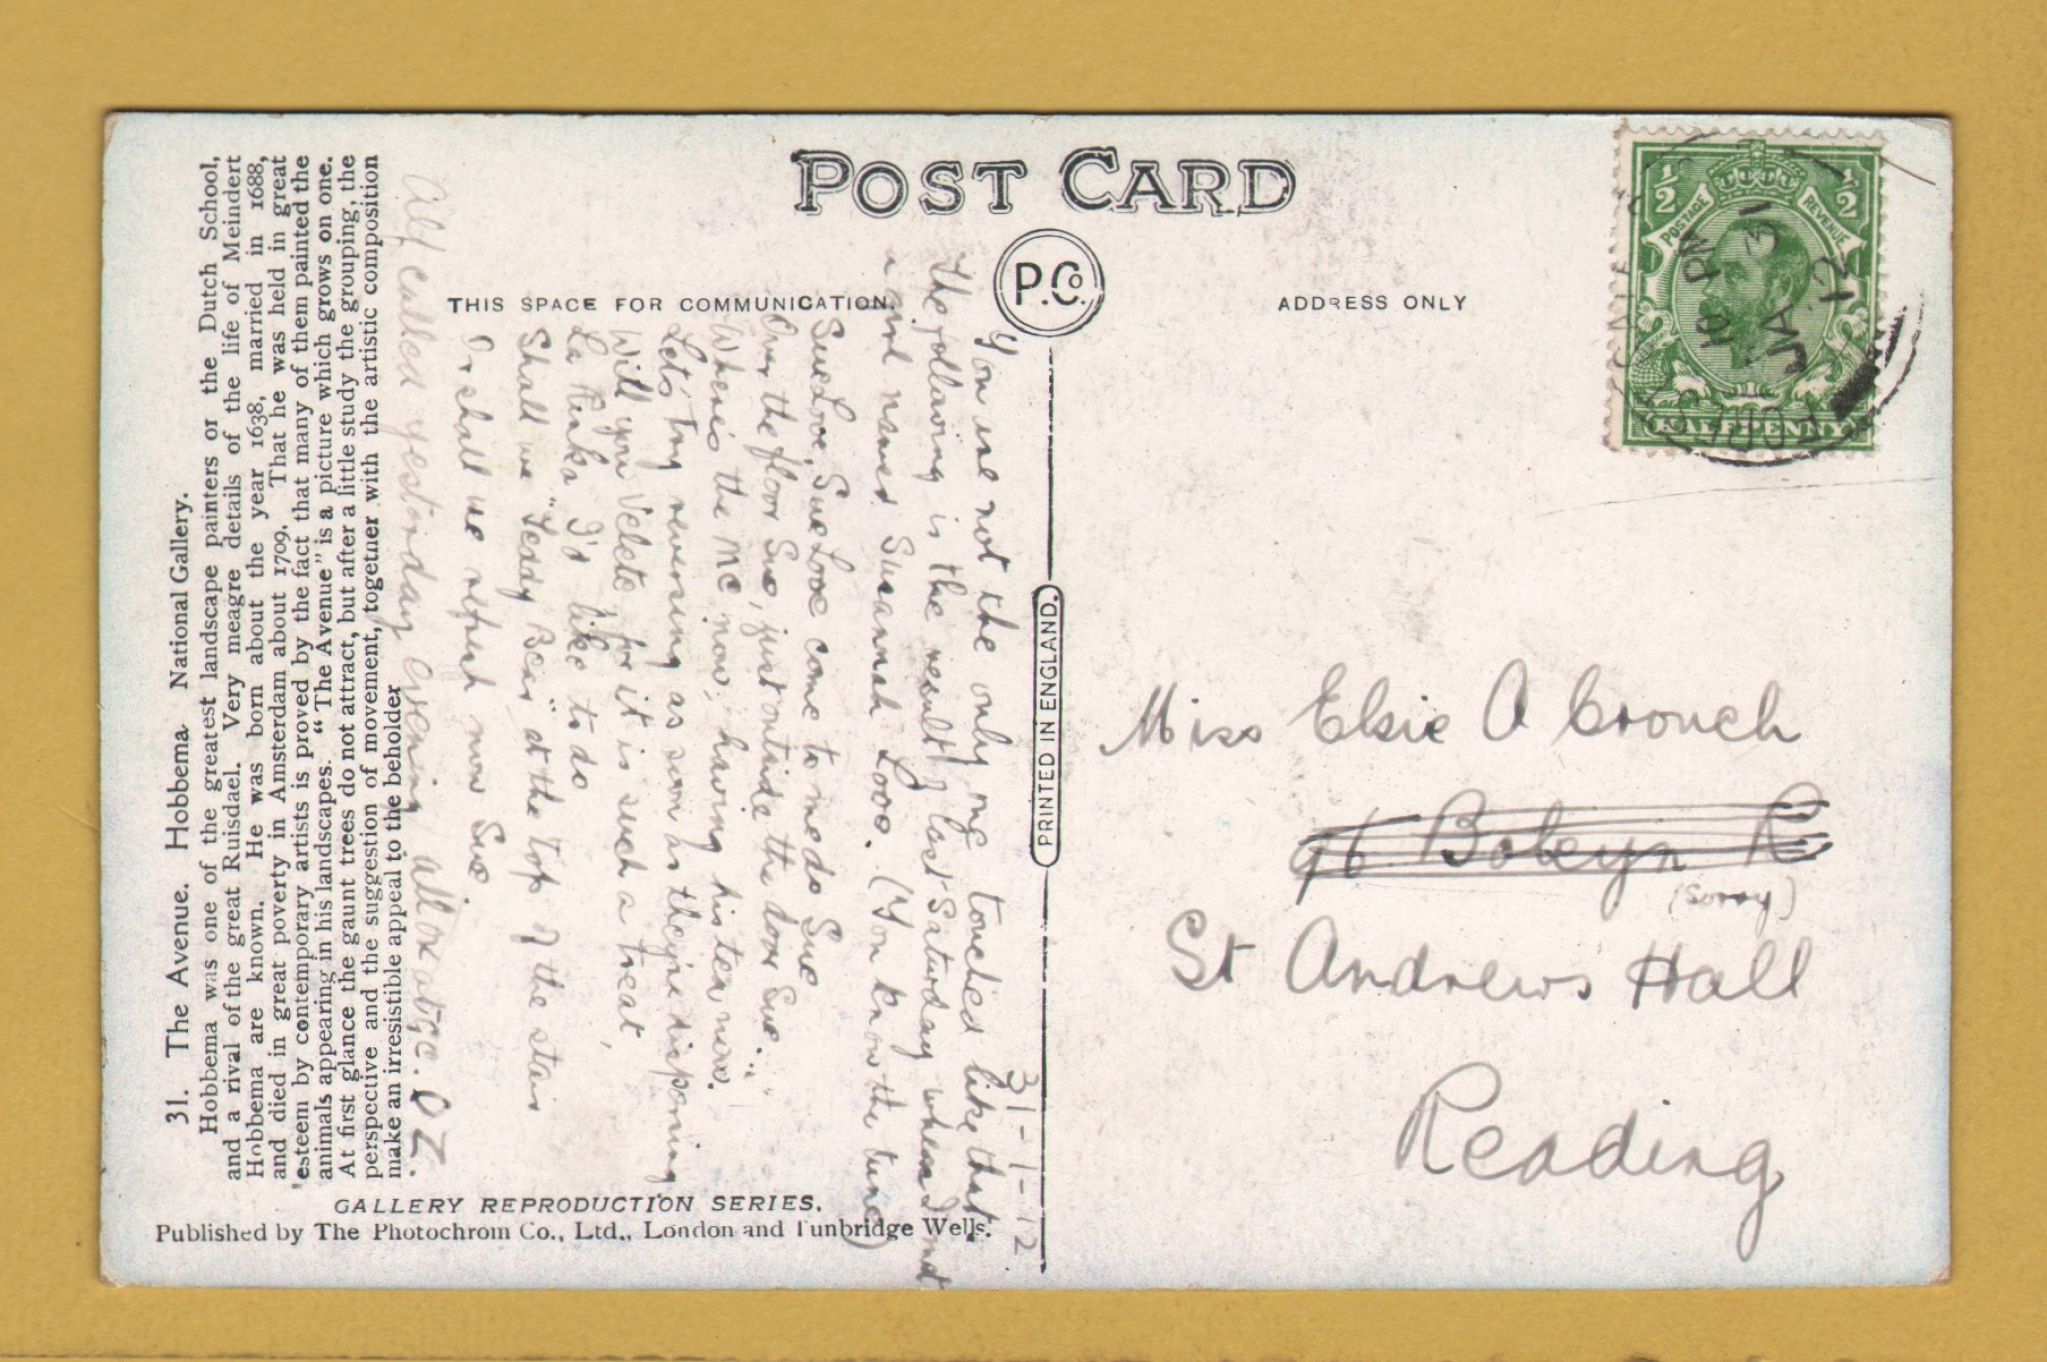 POST CARD
P.Co.
THIS SPACE FOR COMMUNICATION.
ADDRESS ONLY
PRINTED IN ENGLAND.
½ ½
POSTAGE REVENUE
HALFPENNY
10 PM
JA 31
12
31. The Avenue. Hobbema. National Gallery.
Hobbema was one of the greatest landscape painters of the Dutch School,
and a rival of the great Ruisdael. Very meagre details of the life of Meindert
Hobbema are known. He was born about the year 1638, married in 1688,
and died in great poverty in Amsterdam about 1709. That he was held in great
esteem by contemporary artists is proved by the fact that many of them painted the
animals appearing in his landscapes. "The Avenue" is a picture which grows on one.
At first glance the gaunt trees do not attract, but after a little study the grouping, the
perspective and the suggestion of movement, together with the artistic composition
make an irresistible appeal to the beholder
GALLERY REPRODUCTION SERIES.
Published by The Photochrom Co., Ltd., London and Tunbridge Wells.
31-1-12
You are not the only one touched like that
The following is the result of last Saturday when I met
a girl named Susannah Love. (You know the tune)
Sue Love, Sue Love come to me do Sue
Over the floor Sue, just outside the door Sue.
Where's the MC now, having his tea now.
Let's try reversing as soon as they're dispersing
Will you Veleta for it is such a treat,
La Rinka I'd like to do
Shall we "Teddy Bear" at the top of the stairs
Or shall we repeat now Sue.
Alf called yesterday evening, all ok at 9c. OZ.
Miss Elsie A Crouch
96 Boleyn R
(sorry)
St Andrews Hall
Reading